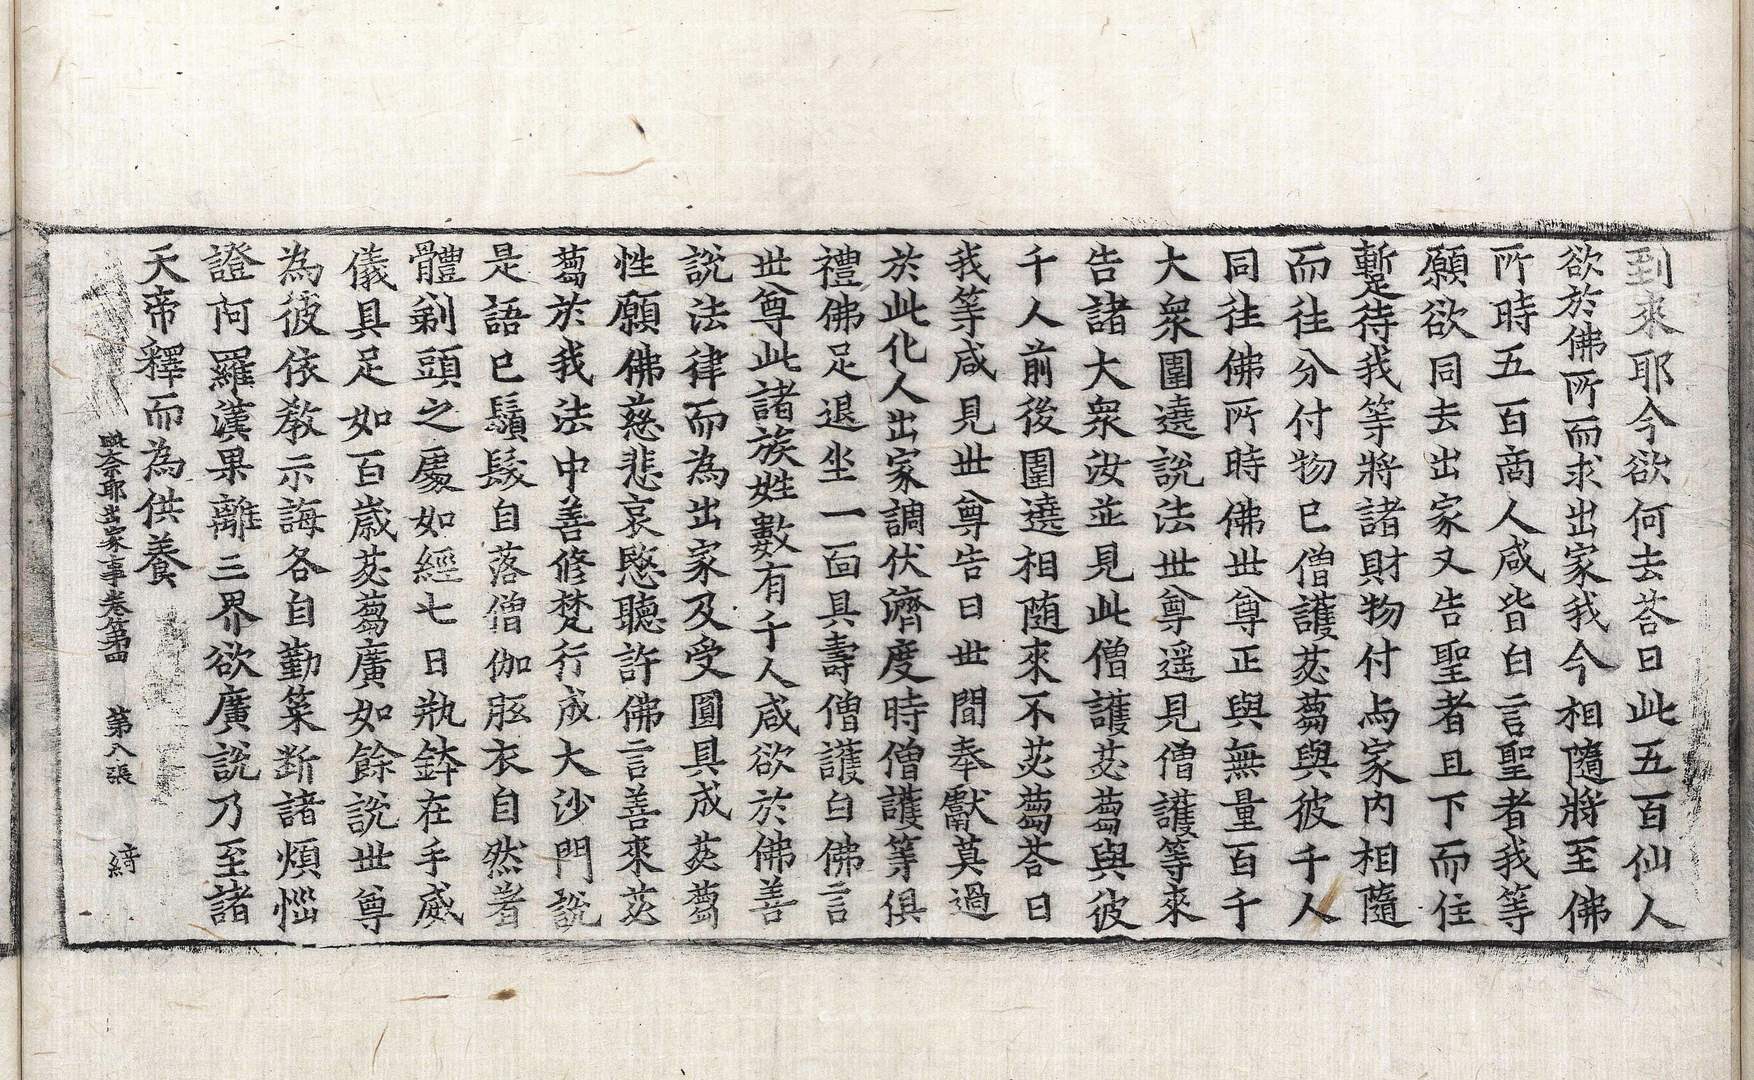 到來耶今欲何去荅曰此五百仙人
欲於佛所而求出家我今相隨將至佛
所時五百商人咸皆白言聖者我等
願欲同去出家又告聖者且下而住
蹔待我等將諸財物付与家内相隨
而往分付物已僧護苾蒭與彼千人
同往佛所時佛世尊正與無量百千
大衆圍遶說法世尊遥見僧護等來
告諸大衆汝並見此僧護苾蒭與彼
千人前後圍遶相隨來不苾蒭荅曰
我等咸見世尊告曰世間奉獻莫過
於此化人出家調伏濟度時僧護等俱
禮佛足退坐一面具壽僧護白佛言
世尊此諸族姓數有千人咸欲於佛善
說法律而為出家及受圓具成苾蒭
性願佛慈悲哀愍聽許佛言善來苾
蒭於我法中善修梵行成大沙門說
是語已鬚髮自落僧伽胝衣自然著
體剃頭之處如經七日執鉢在手威
儀具足如百歲苾蒭廣如餘說世尊
為彼依教示誨各自勤策断諸煩惱
證阿羅漢果離三界欲廣說乃至諸
天帝釋而為供養
毗奈耶出家事卷第四 第八張 綺